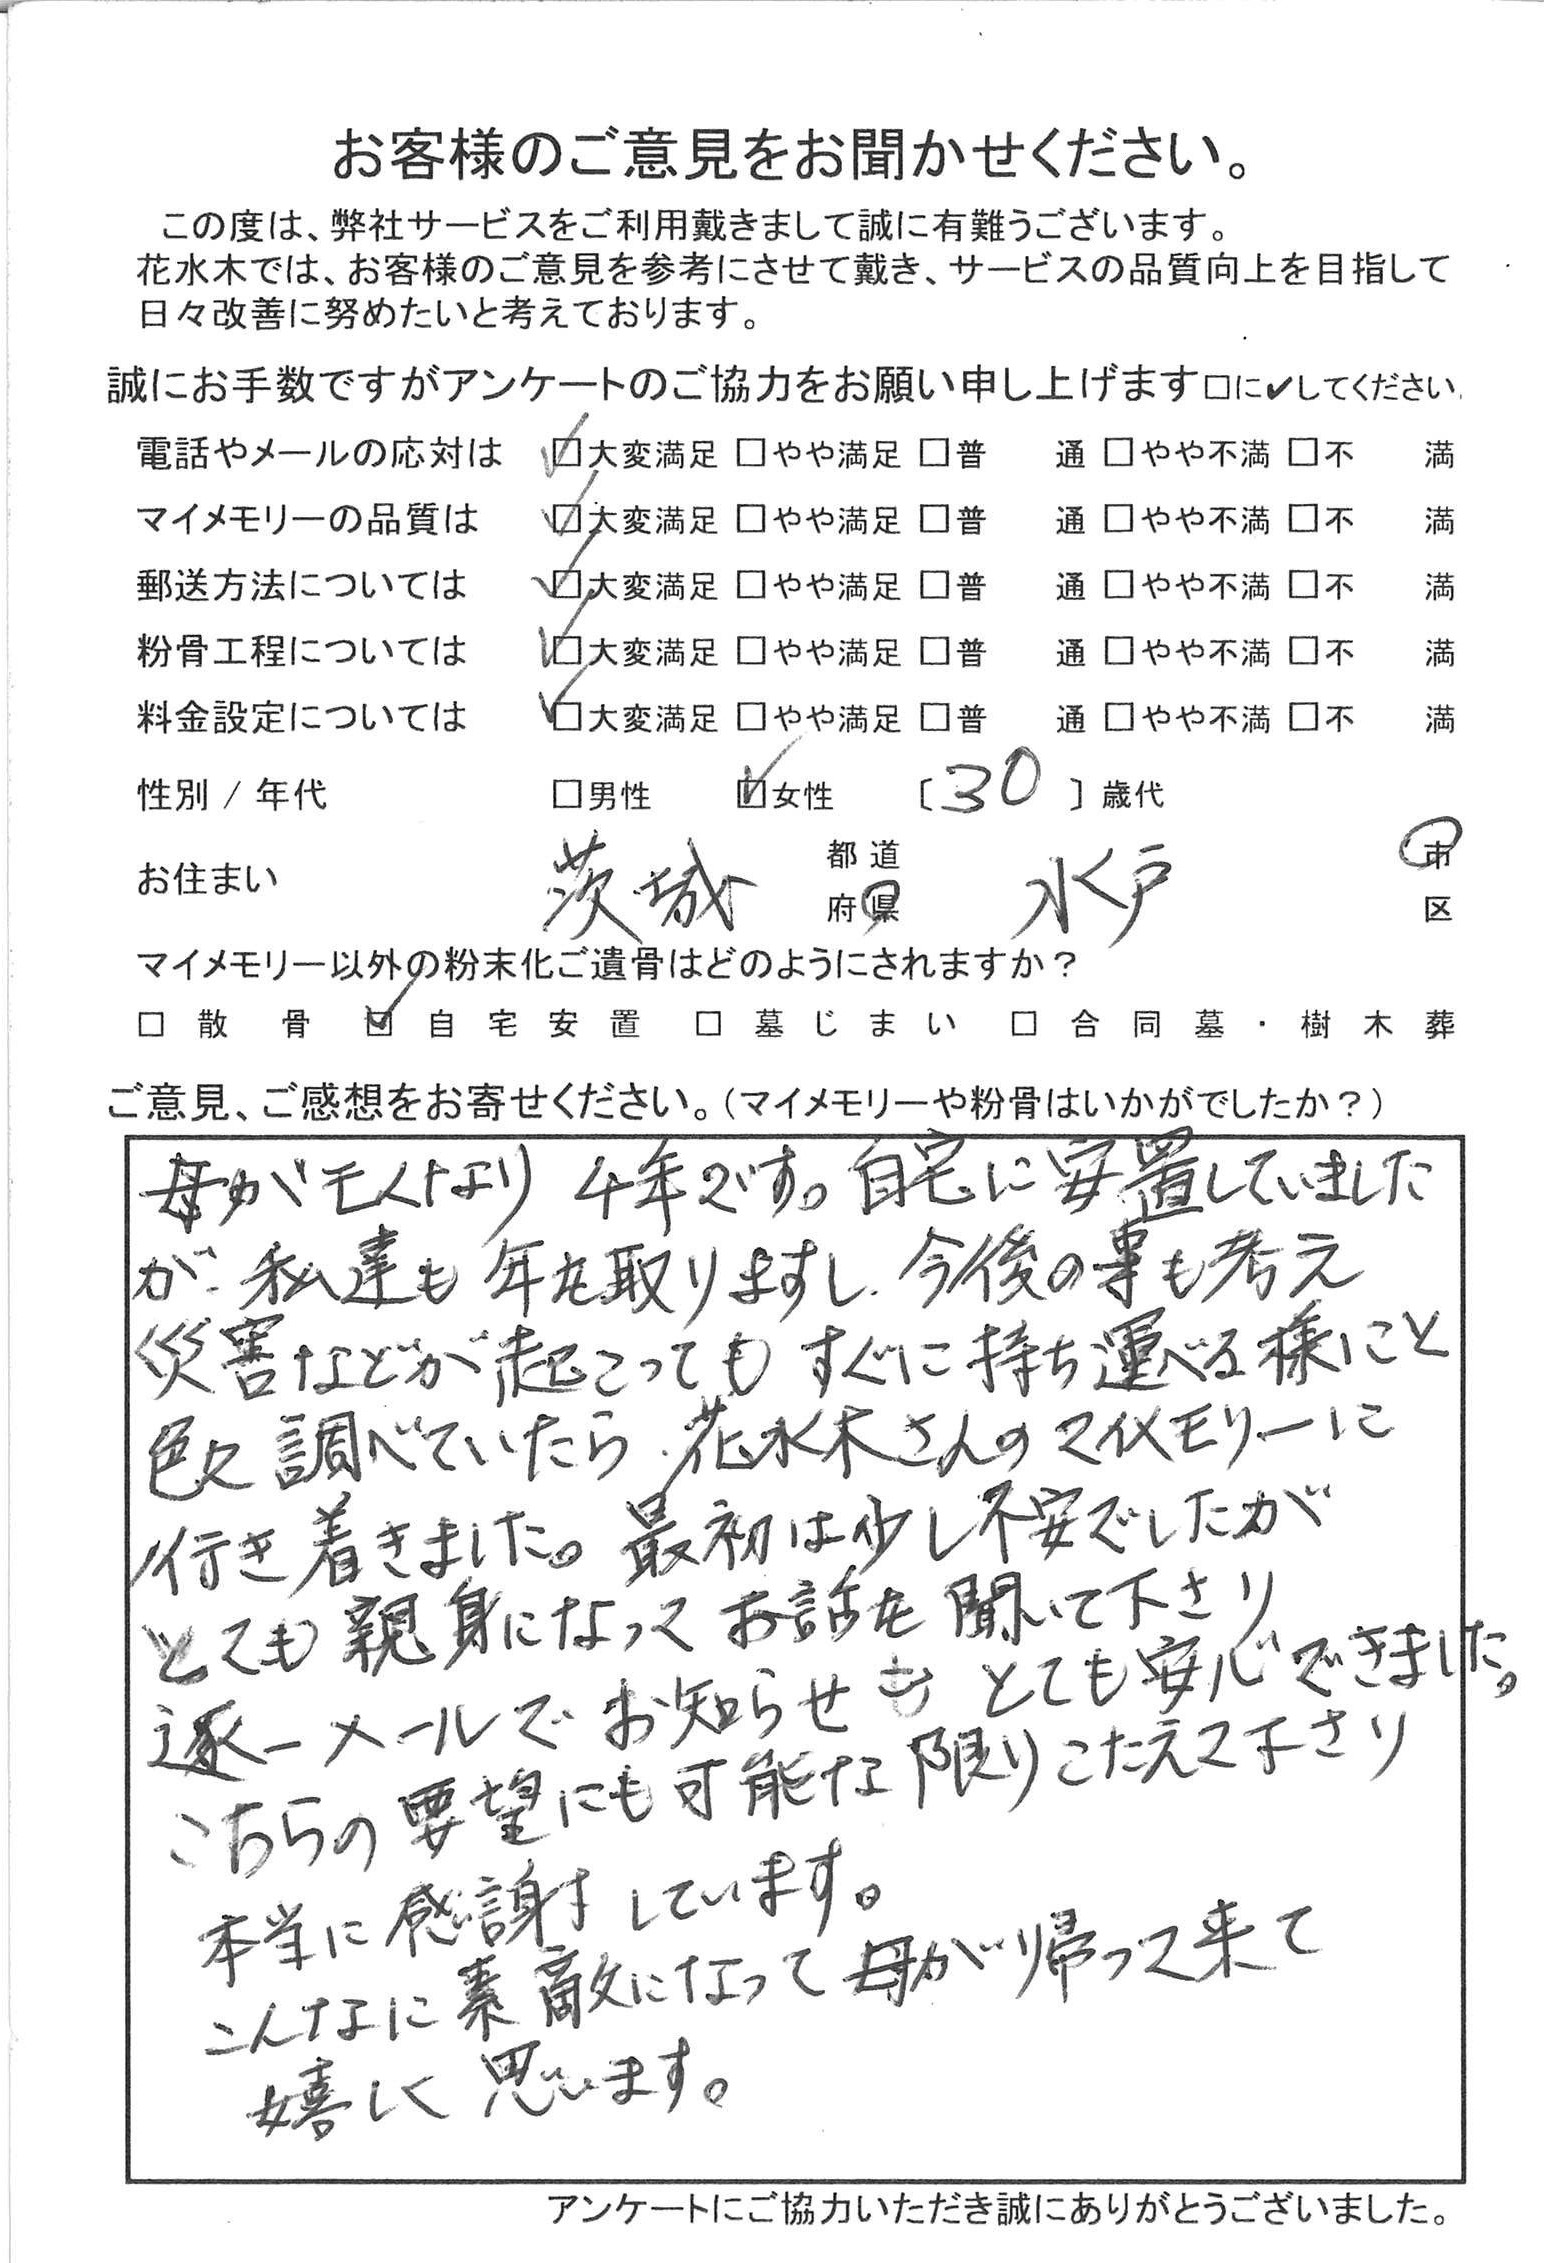 お客様のご意見をお聞かせください。
この度は、弊社サービスをご利用戴きまして誠に有難うございます。
花水木では、お客様のご意見を参考にさせて戴き、サービスの品質向上を目指して
日々改善に努めたいと考えております。
誠にお手数ですがアンケートのご協力をお願い申し上げます□に✔してください。
電話やメールの応対は ☑大変満足 □やや満足 □普 通 □やや不満 □不 満
マイメモリーの品質は ☑大変満足 □やや満足 □普 通 □やや不満 □不 満
郵送方法については ☑大変満足 □やや満足 □普 通 □やや不満 □不 満
粉骨工程については ☑大変満足 □やや満足 □普 通 □やや不満 □不 満
料金設定については ☑大変満足 □やや満足 □普 通 □やや不満 □不 満
性別 / 年代 □男性 ☑女性 〔30〕歳代
お住まい 茨城 都道府県 水戸 市区
マイメモリー以外の粉末化ご遺骨はどのようにされますか？
□ 散骨 ☑ 自宅安置 □ 墓じまい □ 合同墓・樹木葬
ご意見、ご感想をお寄せください。（マイメモリーや粉骨はいかがでしたか？）
母が亡くなり 4年です。自宅に安置していました
が、私達も年を取りますし、今後の事も考え
災害などが起こっても すぐに持ち運べる様にと
色々調べていたら、花水木さんのマイメモリーに
行き着きました。最初は少し不安でしたが
とても親身になって お話を聞いて下さり
逐一メールでお知らせも とても安心できました。
こちらの要望にも可能な限りこたえて下さり
本当に感謝しています。
こんなに素敵になって母が帰って来て
嬉しく思います。
アンケートにご協力いただき誠にありがとうございました。